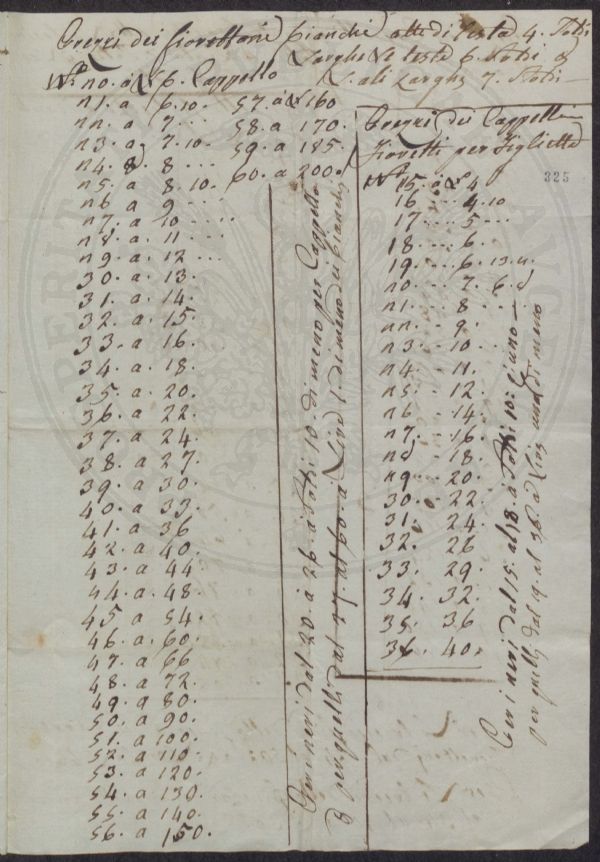 Prezzi dei fiorettoni bianchi alti di testa 4. Soldi
Larghi di testa 6. Soldi
ali Larghe 7. Soldi
N.º 20. a L 6. Cappello
21. a 6. 10.
22. a 7 ...
23. a 7. 10.
24. a 8 ...
25. a 8. 10.
26 a 9 ...
27. a 10 ...
28. a. 11 ...
29. a. 12 ...
30. a. 13.
31. a. 14.
32. a. 15.
33. a 16.
34. a 18.
35. a 20.
36. a 22.
37. a 24.
38. a 27.
39. a 30.
40. a 33.
41. a 36
42. a 40.
43. a 44.
44. a. 48.
45 a 54.
46. a. 60.
47. a 66
48. a 72.
49. a 80.
50. a 90.
51. a 100.
52. a 110.
53. a 120.
54. a 130.
55. a 140.
56. a 150.
57. a L 160
58. a 170.
59. a 185.
60. a 200.
Per i neri dal 20. a 26. a Soldi 10 di meno per Cappello
e per quelli dal 27. al 60. a Lire 1. di meno dei bianchi
Prezzi dei Cappelli
Fioretti per figlietta
325
N.º 15. a L 4
16 ... 4. 10
17 ... 5 ...
18 ... 6.
19 ... 6. 13. 4.
20 ... 7. 6. 8
21. .. 8
22. .. 9.
23 .. 10
24 .. 11.
25 .. 12
26 .. 14.
27. .. 16.
28 .. 18.
29 .. 20.
30 .. 22
31. 24.
32. 26
33. 29
34. 32.
35. 36
36. 40.
Per i neri dal 15. al 18. a Soldi 10: l'uno
per quelli dal 19. al 36. a Lire una di meno